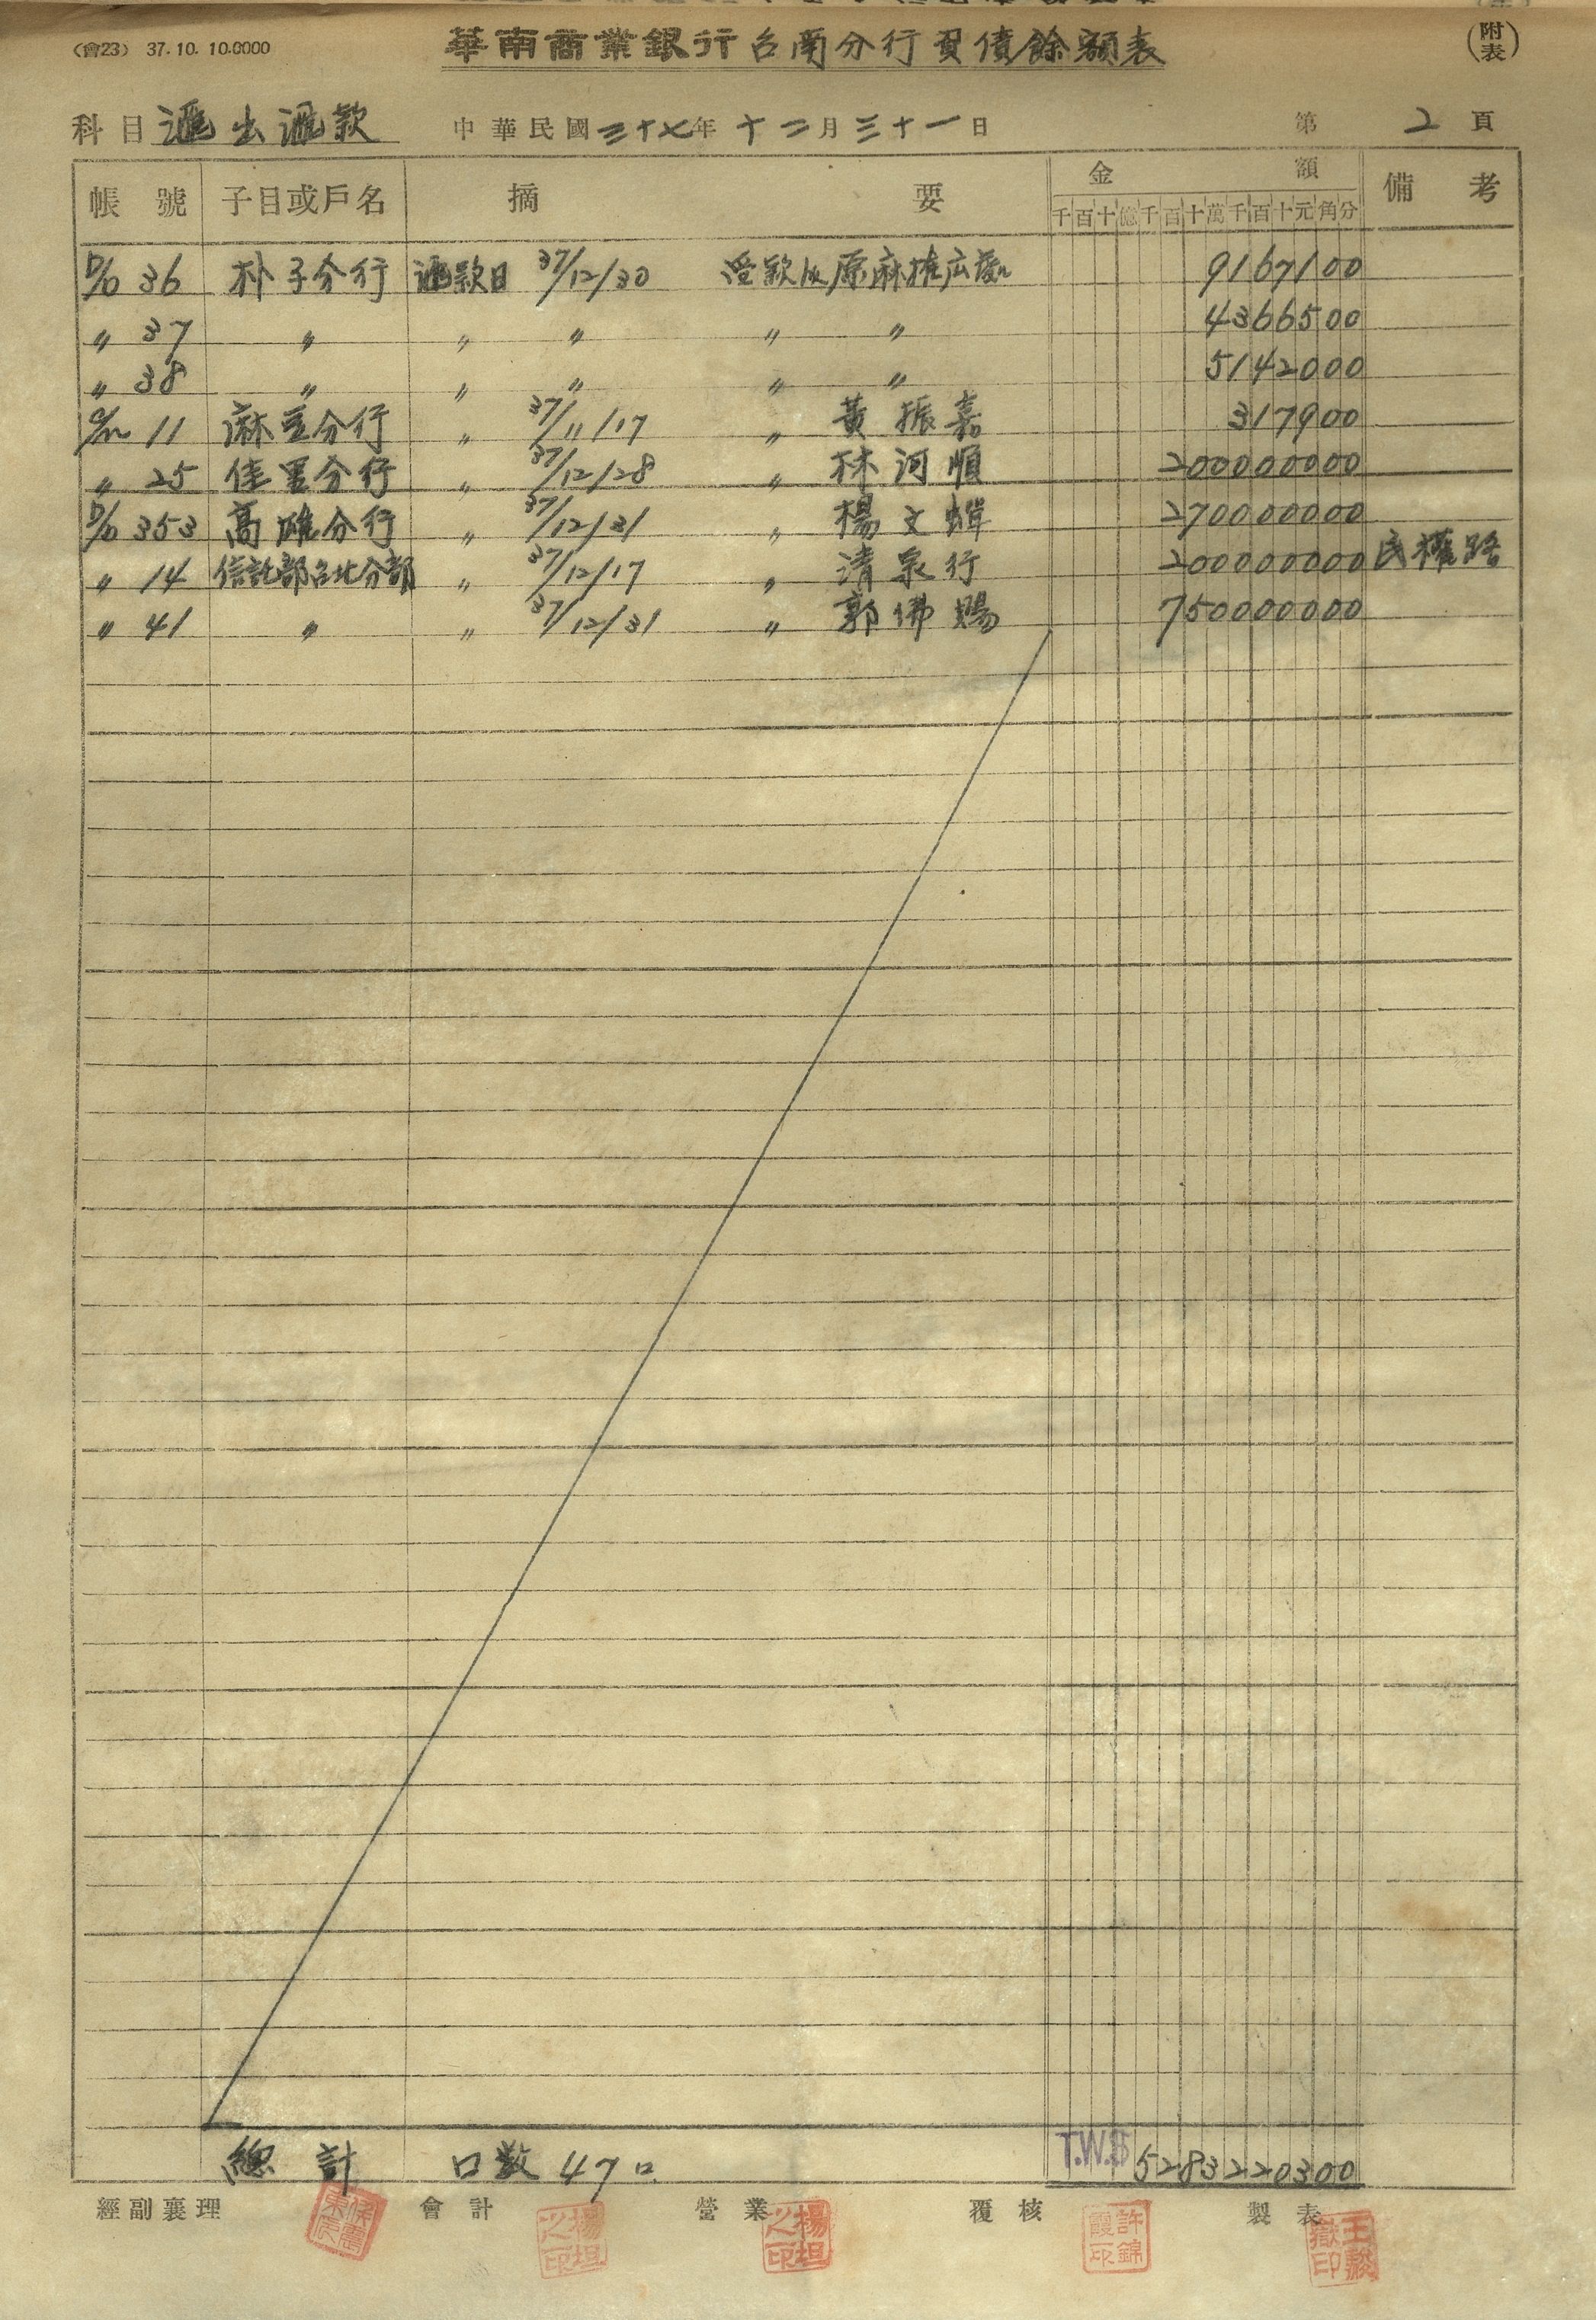 (會23) 37.10.10.0000
華南商業銀行台南分行負債餘額表
(附表)
科目 滙出滙款 中華民國三十七年十二月三十一日 第 2 頁
帳號 子目或戶名 摘要 金額 備考
千百十億千百十萬千百十元角分
D/D 36 朴子分行 滙款日 37/12/30 受款人 原麻推広 9167100
〃 37 〃 〃 〃 〃 〃 4366500
〃 38 〃 〃 〃 〃 〃 5142000
11 麻豆分行 〃 37/11/17 〃 黃振嘉 317900
〃 25 佳里分行 〃 37/12/28 〃 林河順 200000000
D/D 353 高雄分行 〃 37/12/31 〃 楊文 270000000
〃 14 信託部台北分部 〃 37/12/17 〃 清泉行 200000000 民權路
〃 41 〃 〃 37/12/31 〃 郭佛賜 750000000
總計 口数 47口 T.W.$ 5283220300
經副襄理 會計 營業 覆核 製表
楊坦之印
楊坦之印
許錦霞印